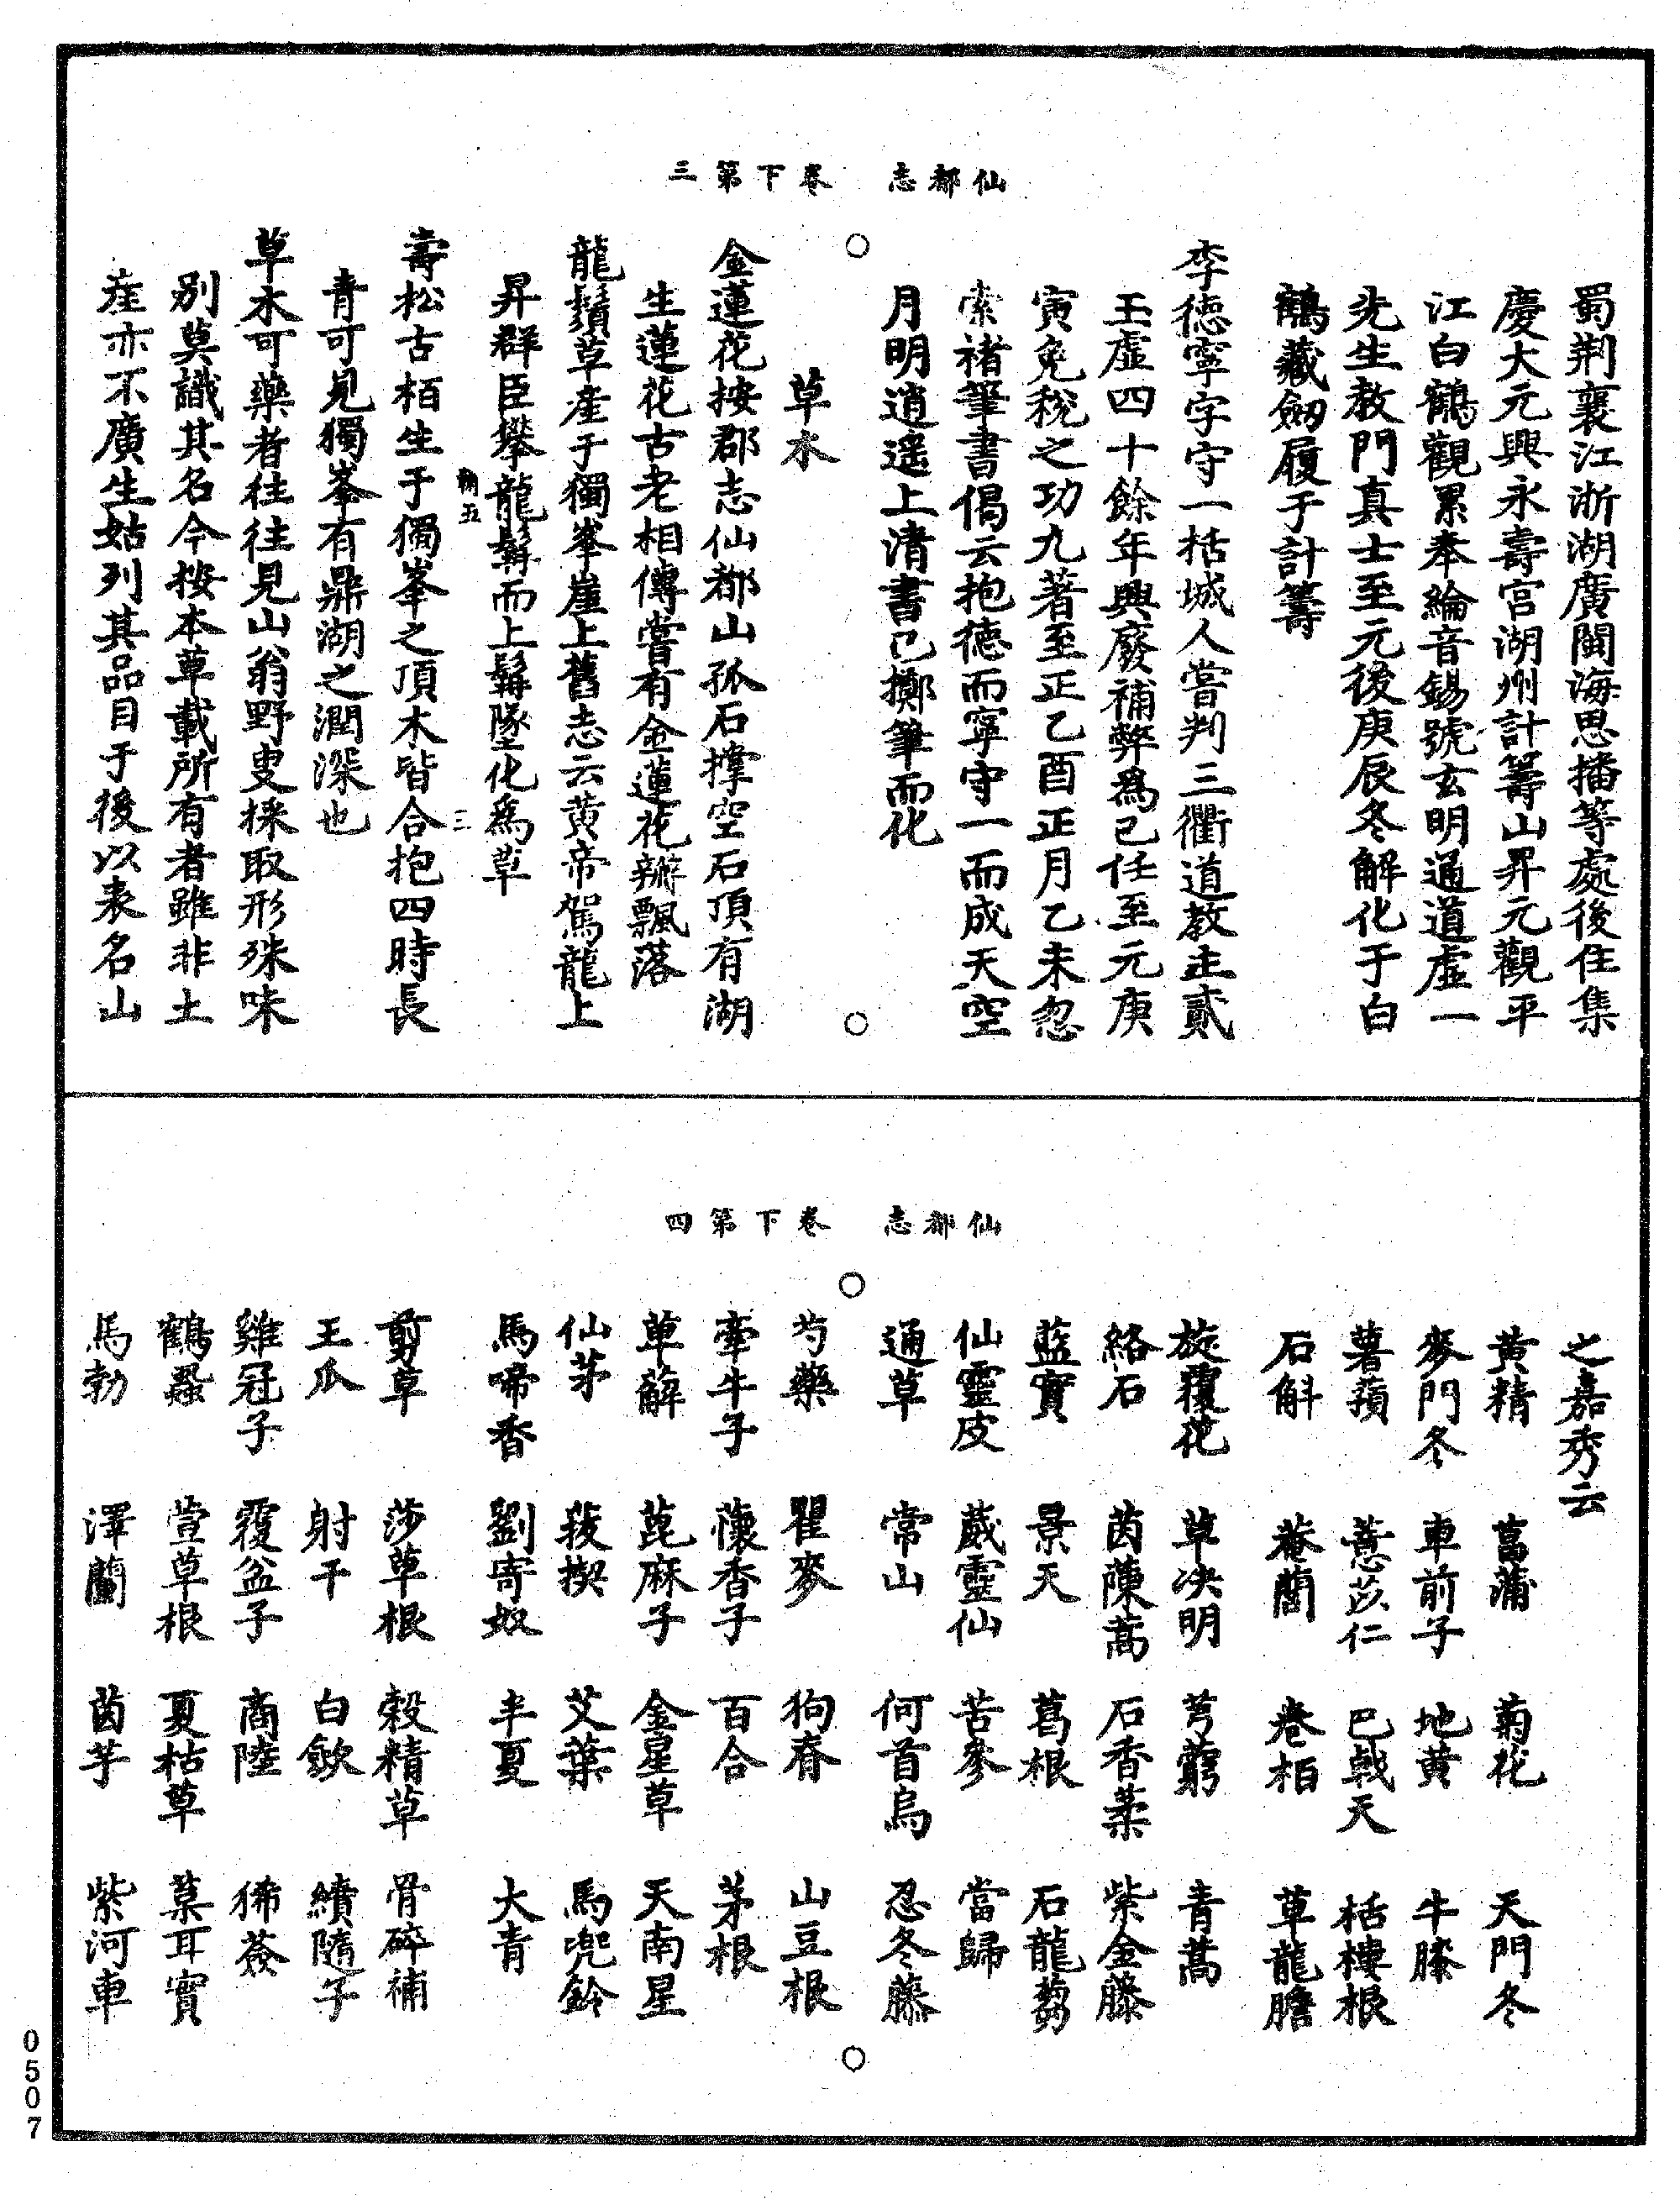 仙都志　卷下第三
蜀荆襄江浙湖廣閩海思播等處後住集
慶大元興永壽宫湖州計籌山昇元觀平
江白鶴觀累奉綸音錫號玄明通道虛一
先生教門真士至元後庚辰冬解化于白
鶴藏劒履于計籌
李德寧字守一括城人嘗判三衢道教主貳
玉虛四十餘年興廢補弊爲己任至元庚
寅免稅之功九著至正乙酉正月乙未忽
索褚筆書偈云抱德而寧守一而成天空
月明逍遥上清書已擲筆而化
草木
金蓮花按郡志仙都山孤石撑空石頂有湖
生蓮花古老相傳嘗有金蓮花瓣飄落
龍鬚草産于獨峯崖上舊志云黄帝駕龍上
昇群臣攀龍髯而上髯墜化爲草
壽松古栢生于獨峯之頂木皆合抱四時長
青可見獨峯有鼎湖之潤深也
草木可藥者往往見山翁野叟採取形殊味
别莫識其名今按本草載所有者雖非土
産亦不廣生姑列其品目于後以表名山
仙都志　卷下第四
之嘉秀云
黄精　菖蒲　菊花　天門冬
麥門冬　車前子　地黄　牛膝
薯蕷　薏苡仁　巴戟天　栝樓根
石斛　菴䕡　卷柏　草龍膽
旋覆花　草决明　芎藭　青蒿
絡石　茵陳蒿　石香葇　紫金藤
藍實　景天　葛根　石龍芻
仙靈皮　葳靈仙　苦參　當歸
通草　常山　何首烏　忍冬藤
芍藥　瞿麥　狗脊　山豆根
牽牛子　蘹香子　百合　茅根
萆薢　萞麻子　金星草　天南星
仙茅　菝揳　艾葉　馬兜鈴
馬啼香　劉寄奴　半夏　大青
剪草　莎草根　榖精草　骨碎補
王瓜　射干　白歛　續隨子
雞冠子　覆盆子　商陸　狶薟
鶴蝨　萱草根　夏枯草　菓耳實
馬勃　澤蘭　茵芋　紫河車
0507